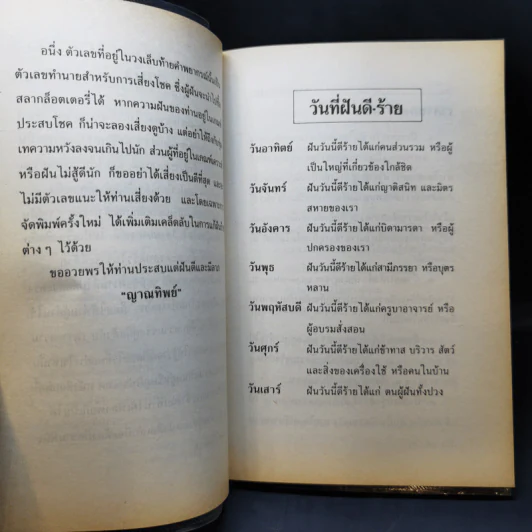 อนึ่ง ตัวเลขที่อยู่ในวงเล็บท้ายคำพยากรณ์นั้นเป็น
ตัวเลขทำนายสำหรับการเสี่ยงโชค ซึ่งผู้ฝันจะนำไป
สลากล็อตเตอรี่ได้ หากความฝันของท่านอยู่ในเกณฑ์
ประสบโชค ก็น่าจะลองเสี่ยงดูบ้าง แต่อย่าให้ถึง
เทความหวังลงจนเกินไปนัก ส่วนผู้ที่อยู่ในเกณฑ์
หรือฝันไม่สู้ดีนัก ก็ขออย่าได้เสี่ยงเป็นดีที่สุด
ไม่มีตัวเลขแนะให้ท่านเสี่ยงด้วย และโดยเฉพาะ
จัดพิมพ์ครั้งใหม่ ได้เพิ่มเติมเคล็ดลับในการ
ต่าง ๆ ไว้ด้วย
ขออวยพรให้ท่านประสบแต่ฝันดีและมี
"ญาณทิพย์"
วันที่ฝันดี-ร้าย
วันอาทิตย์ ฝันวันนี้ดีร้ายได้แก่คนส่วนรวม หรือผู้
เป็นใหญ่ที่เกี่ยวข้องใกล้ชิด
วันจันทร์ ฝันวันนี้ดีร้ายได้แก่ญาติสนิท และมิตร
สหายของเรา
วันอังคาร ฝันวันนี้ดีร้ายได้แก่บิดามารดา หรือผู้
ปกครองของเรา
วันพุธ ฝันวันนี้ดีร้ายได้แก่สามีภรรยา หรือบุตร
หลาน
วันพฤหัสบดี ฝันวันนี้ดีร้ายได้แก่ครูบาอาจารย์ หรือ
ผู้อบรมสั่งสอน
วันศุกร์ ฝันวันนี้ดีร้ายได้แก่ข้าทาส บริวาร สัตว์
และสิ่งของเครื่องใช้ หรือคนในบ้าน
วันเสาร์ ฝันวันนี้ดีร้ายได้แก่ ตนผู้ฝันทั้งปวง